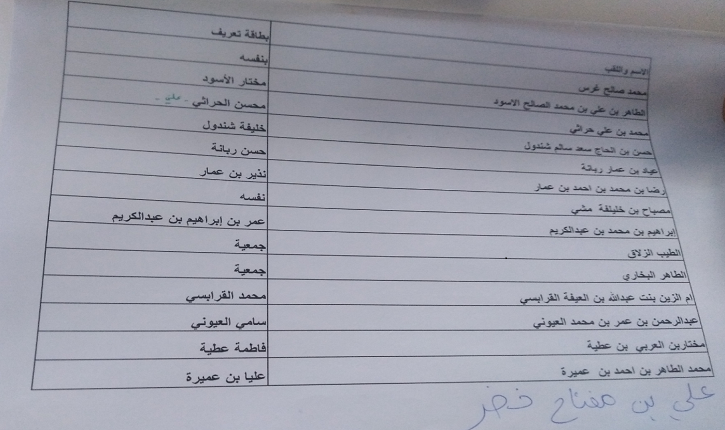 الاسم واللقب بطاقة تعريف
محمد صالح غرس بنفسه
الطاهر بن علي بن محمد الصالح الاسود مختار الأسود
محمد بن علي حراثي محسن الحراثي - علي -
حسن بن الحاج سعد سالم شندول خليفة شندول
عياد بن عمار ربانة حسن ربانة
رضا بن محمد بن احمد بن عمار نذير بن عمار
مصباح بن خليلفة مشي نفسه
إبراهيم بن محمد بن عبدالكريم عمر بن إبراهيم بن عبدالكريم
الطيب الزلاق جمعية
الطاهر البخاري جمعية
ام الزين بنت عبدالله بن العيفة القرابسي محمد القرابسي
عبدالرحمن بن عمر بن محمد العيوني سامي العيوني
مختاربن العربي بن عطية فاطمة عطية
محمد الطاهر بن احمد بن عميرة عليا بن عميرة
علي بن مفتاح خضر